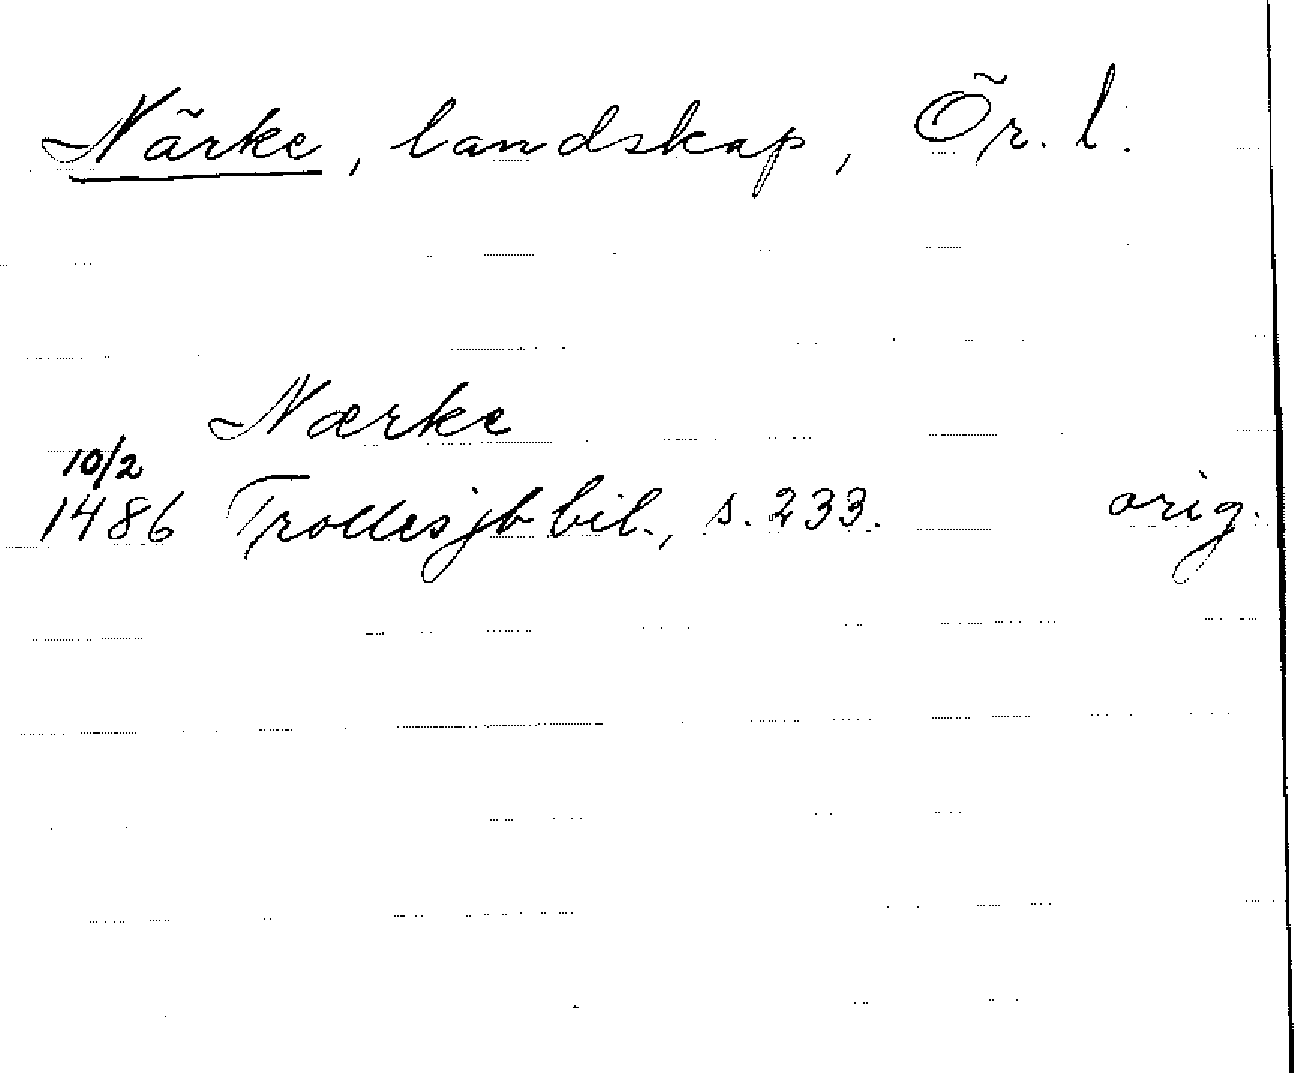 Närke, landskap, Ör. l.
Nærke
10/2
1486 Trollesjb bil., s. 233. orig.